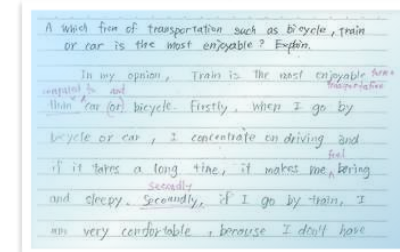 A which from of transportation such as bicycle, train
or car is the most enjoyable? Explain.
In my opnion, Train is the most enjoyable form of
transportation
compared to and
than car (or) bicycle. Firstly, when I go by
bicycle or car, I concentrate on driving and
feel
if it takes a long time, it makes me boring
secondly
and sleepy. Secoundly, if I go by train, I
am very comfortable, because I don't have